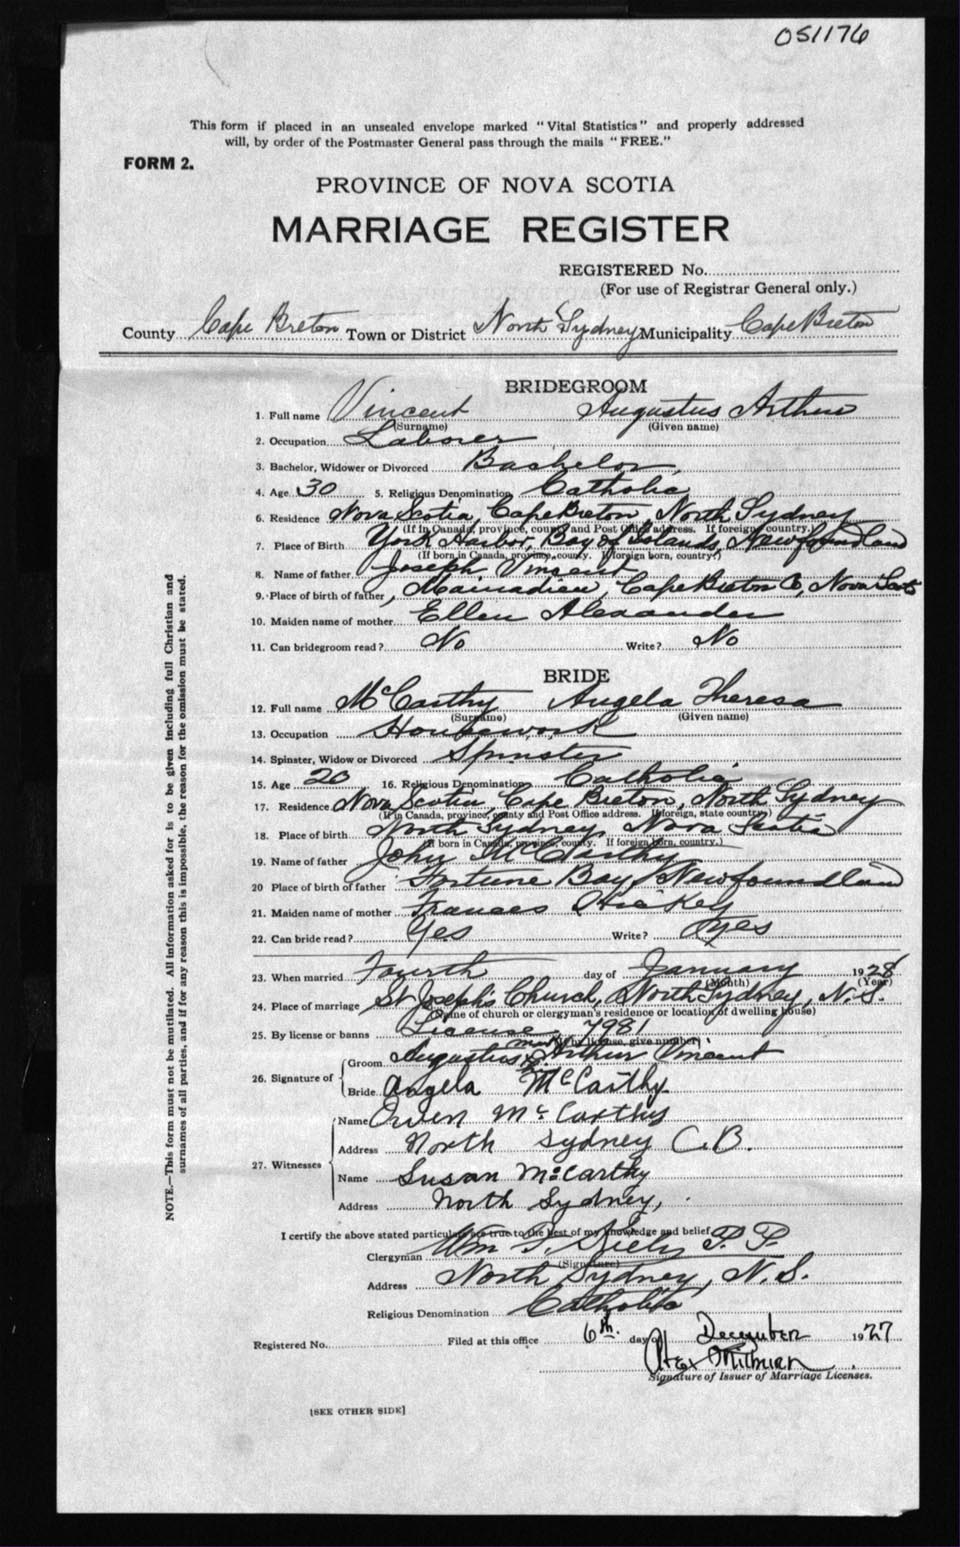 051176
This form if placed in an unsealed envelope marked "Vital Statistics" and properly addressed
will, by order of the Postmaster General pass through the mails "FREE."
FORM 2.
PROVINCE OF NOVA SCOTIA
MARRIAGE REGISTER
REGISTERED No.
(For use of Registrar General only.)
County Cape Breton Town or District North Sydney Municipality Cape Breton
BRIDEGROOM
1. Full name Vincent Augustus Arthur
(Surname) (Given name)
2. Occupation Laborer
3. Bachelor, Widower or Divorced Bachelor
4. Age 30 5. Religious Denomination Catholic
6. Residence Nova Scotia, Cape Breton, North Sydney
(If in Canada, province, county and Post Office address. If foreign, country.)
7. Place of Birth York Harbor, Bay of Islands, Newfoundland
(If born in Canada, province, county. If foreign born, country.)
8. Name of father Joseph Vincent
9. Place of birth of father, Mainadieu, Cape Breton Co, Nova Scotia
10. Maiden name of mother Ellen Alexander
11. Can bridegroom read? No Write? No
BRIDE
12. Full name McCarthy Angela Theresa
(Surname) (Given name)
13. Occupation Housework
14. Spinster, Widow or Divorced Spinster
15. Age 20 16. Religious Denomination Catholic
17. Residence Nova Scotia, Cape Breton, North Sydney
(If in Canada, province, county and Post Office address. If foreign, state country)
18. Place of birth North Sydney, Nova Scotia
(If born in Canada, province, county. If foreign born, country.)
19. Name of father John McCarthy
20 Place of birth of father Fortune Bay, Newfoundland
21. Maiden name of mother Frances Hickey
22. Can bride read? Yes Write? Yes
23. When married Fourth day of January 1928
(Month) (Year)
24. Place of marriage St Joseph's Church, North Sydney, N.S.
(Name of church or clergyman's residence or location of dwelling house)
25. By license or banns License, 7981
(If by license, give number)
26. Signature of
Groom Augustus Arthur Vincent
Bride Angela McCarthy
27. Witnesses
Name Owen McCarthy
Address North Sydney C.B.
Name Susan McCarthy
Address North Sydney,
I certify the above stated particulars are true to the best of my knowledge and belief
Clergyman Wm P. P.
(Signature)
Address North Sydney, N.S.
Religious Denomination Catholic
Registered No. Filed at this office 6th. day of December 1927
Signature of Issuer of Marriage Licenses.
[SEE OTHER SIDE]
NOTE.—This form must not be mutilated. All information asked for is to be given including full Christian and
surnames of all parties, and if for any reason this is impossible, the reason for the omission must be stated.